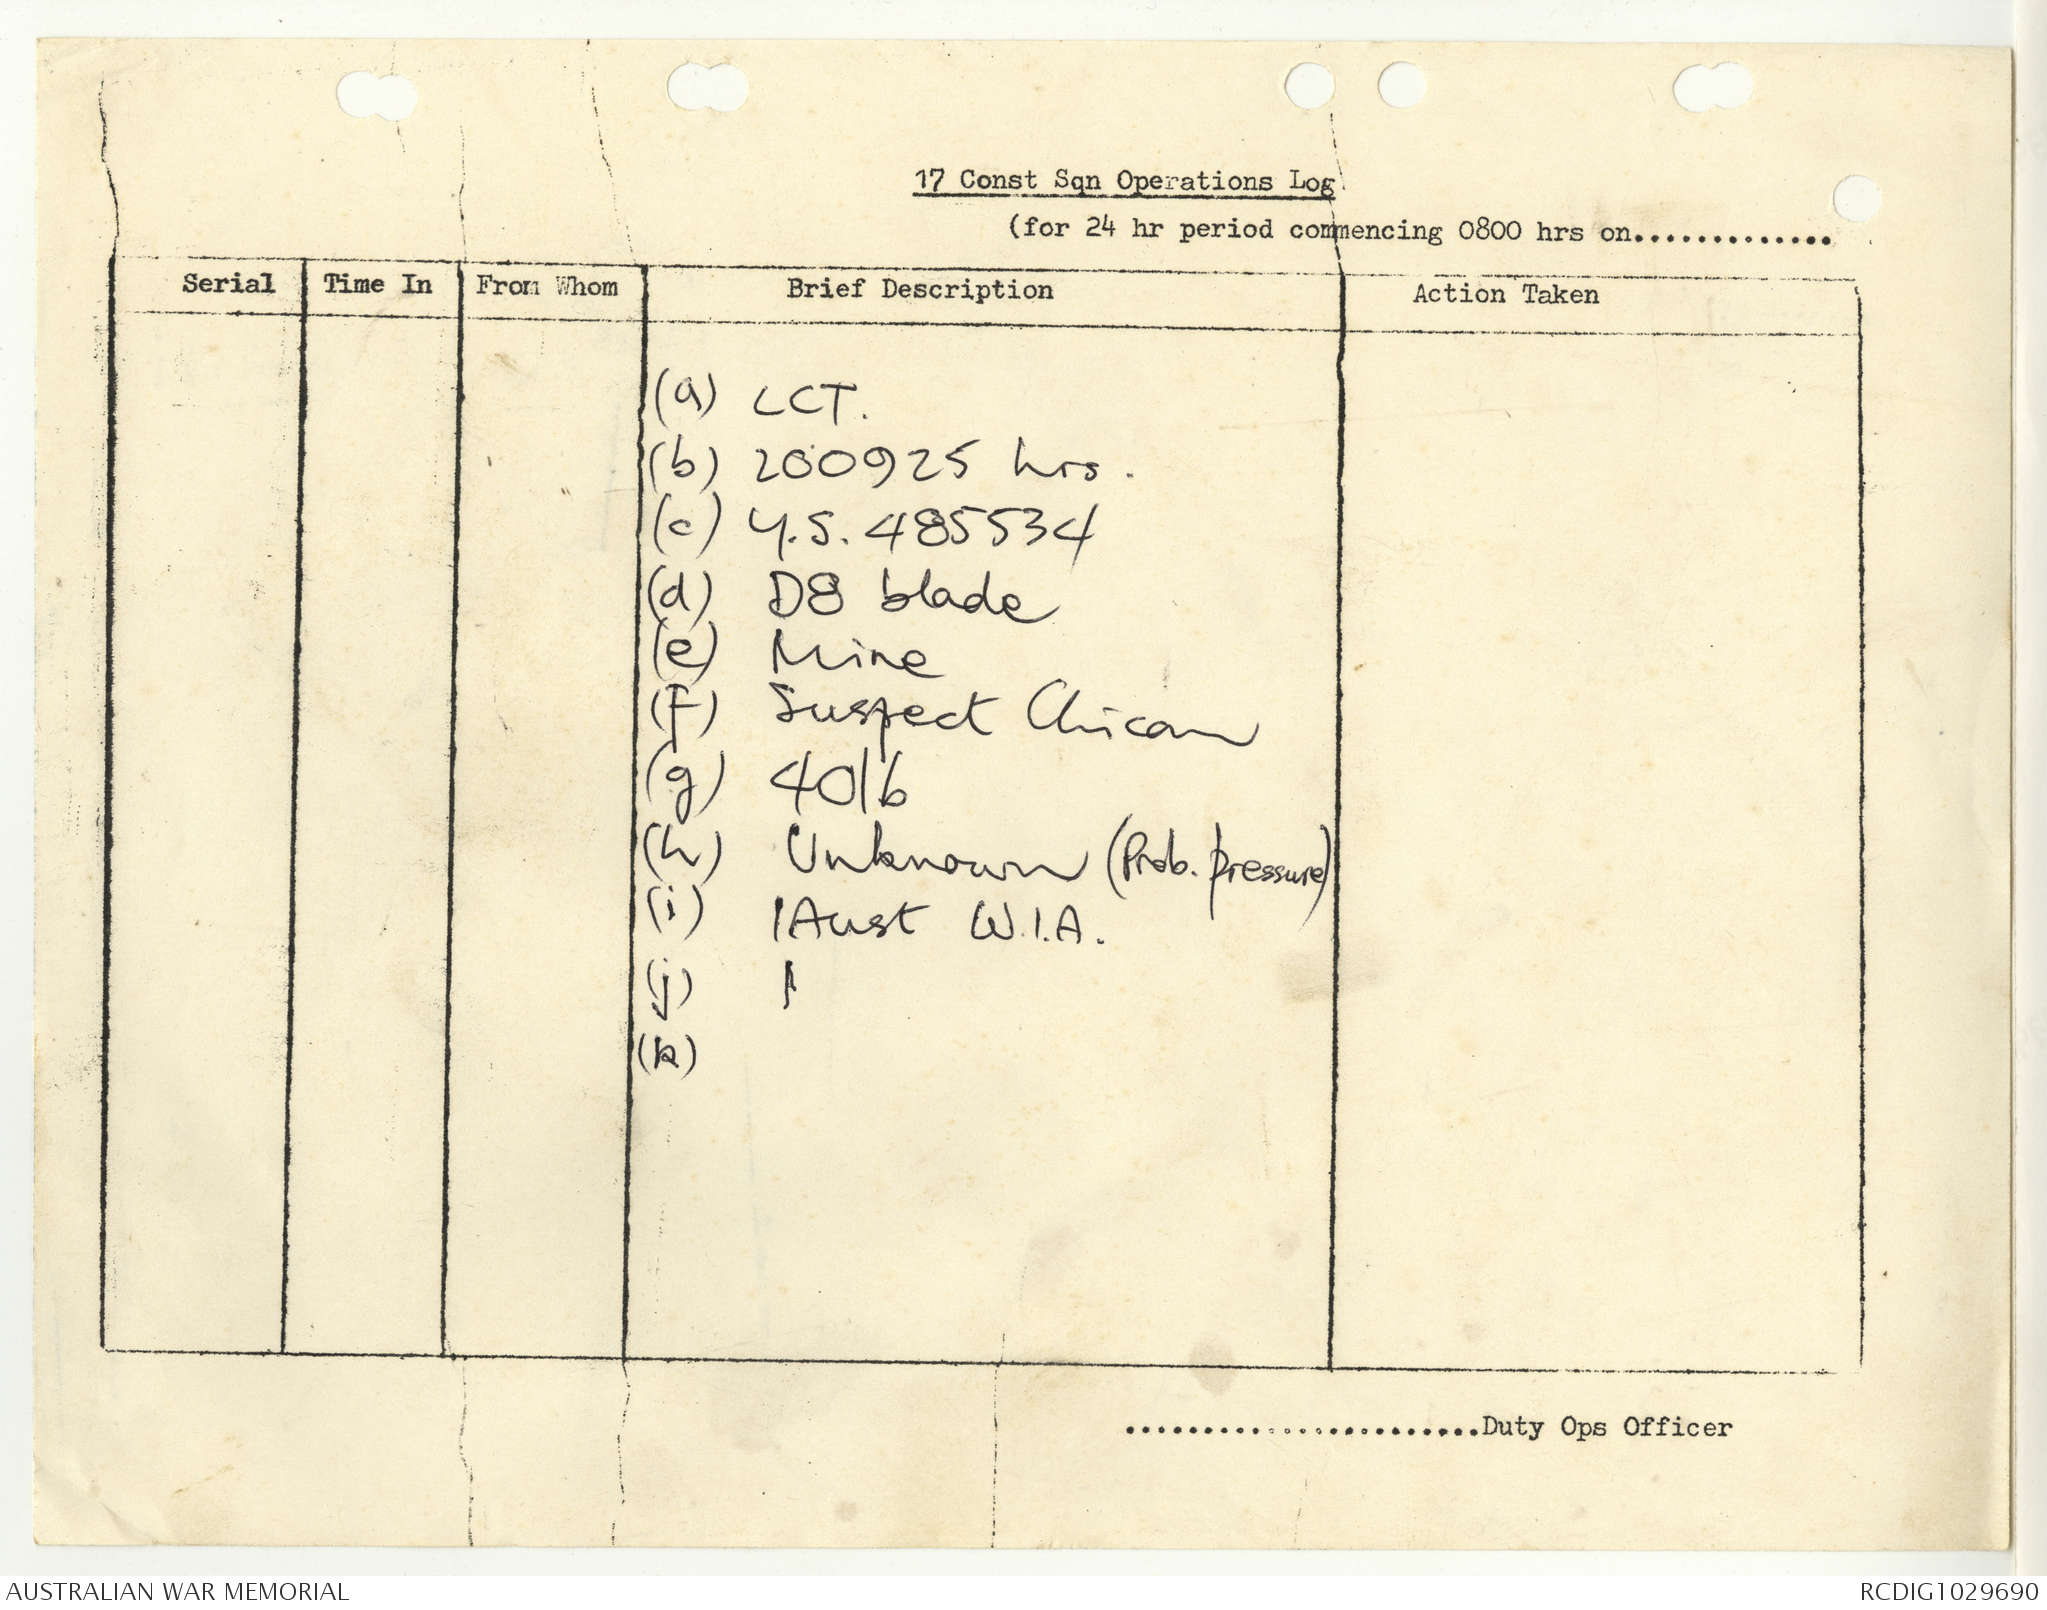 17 Const Sqn Operations Log
(for 24 hr period commencing 0800 hrs on.............
Serial Time In From Whom Brief Description Action Taken
(a) LCT.
(b) 200925 hrs.
(c) Y.S. 485534
(d) D8 blade
(e) Mine
(f) Suspect Chicom
(g) 40lb
(h) Unknown (Prob. pressure)
(i) 1 Aust W.I.A.
(j)
(k)
.......................Duty Ops Officer
AUSTRALIAN WAR MEMORIAL RCDIG1029690